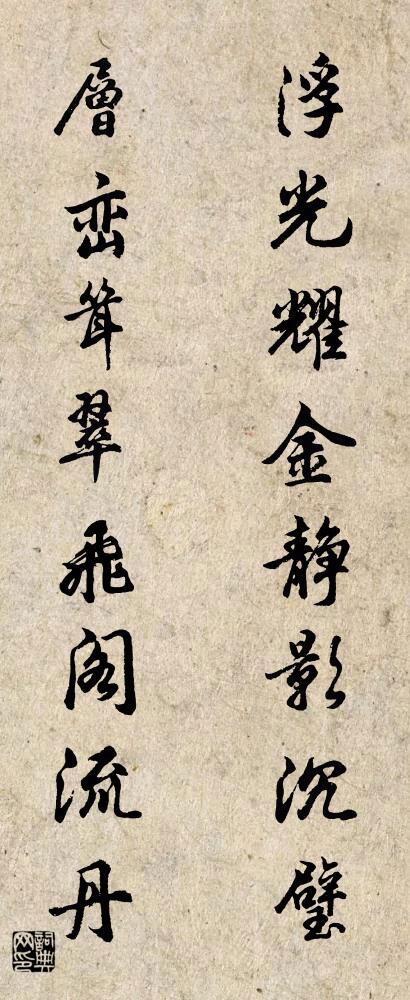 浮光耀金静影沉璧
層峦耸翠飛阁流丹
詞典网印